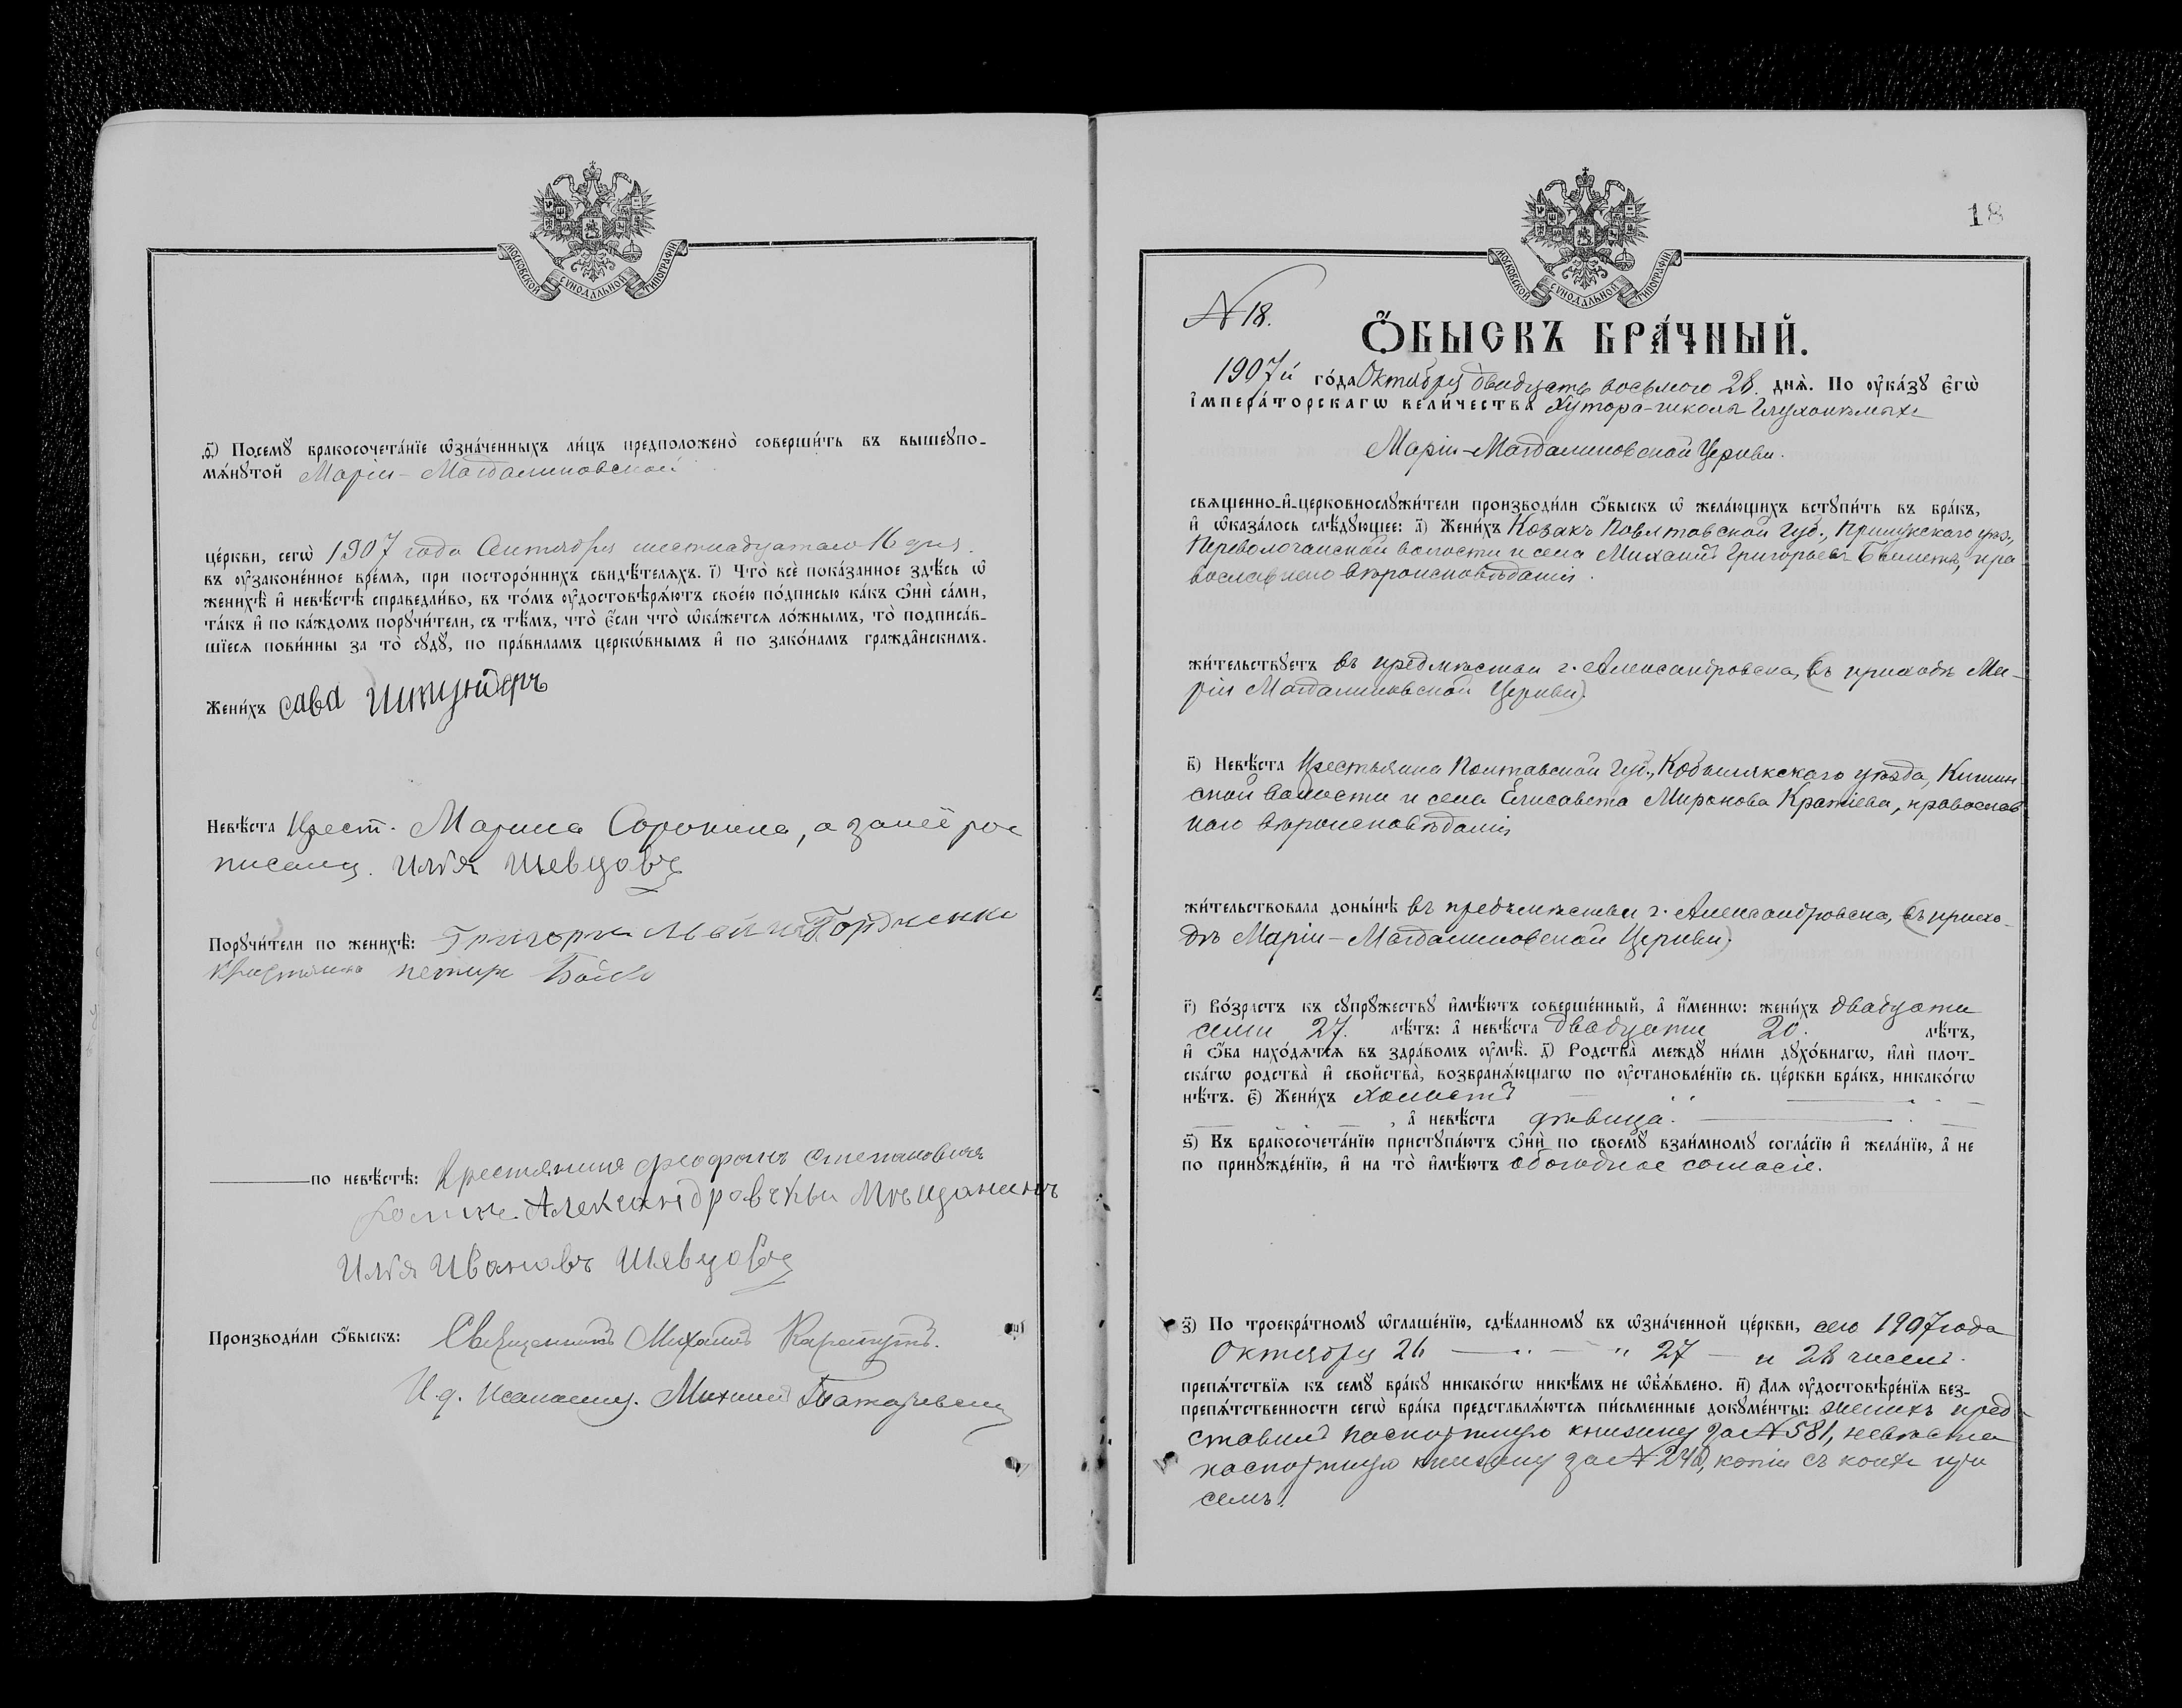 МОСКОВСКОЙ СѴНОДАЛЬНОЙ ТИПОГРАФІИ
ѳ҃) Посемꙋ̀ бракосочета́нїе ѡ҆зна́ченныхъ ли́цъ предположено̀ соверши́ть въ вышеꙋпо-
мѧ́нꙋтой Маріи-Магдалиновской
це́ркви, сегѡ̀ 1907 года Сентября шестнадцатаго 16 дня.
въ ᲂу҆законе́нное вре́мѧ, при посторо́ннихъ свидѣ́телѧхъ. і҃) Что̀ всѐ пока́занное здѣ́сь ѡ҆
женихѣ̀ и҆ невѣ́стѣ справедли́во, въ то́мъ ᲂу҆достовѣрѧ́ютъ свое́ю по́дписью ка́къ ѻ҆нѝ са́ми,
та́къ и҆ по ка́ждомъ порꙋчи́тели, съ тѣ́мъ, что̀ є҆́сли что̀ ѡ҆ка́жетсѧ ло́жнымъ, то̀ подписа́в-
шїесѧ пови́нны за то̀ сꙋдꙋ̀, по пра́виламъ церко́внымъ и҆ по зако́намъ гражда̑нскимъ.
Жени́хъ Сава Шпундеръ
Невѣ́ста Крест. Марина Сорокина, а за неё рос
писался. Илья Шевцовъ
Порꙋчи́тели по женихѣ̀: Григори Гордиенко
Крестянинъ петиръ Бойко
по невѣ́стѣ: Крестянинъ феофанъ степановичъ
Александровскы Мѣщанинъ
Илья Ивановъ Шевцовъ
Производи́ли ѻ҆́быскъ: Священникъ Михаилъ
И. д. псаломщ. Михаилъ
18
МОСКОВСКОЙ СѴНОДАЛЬНОЙ ТИПОГРАФІИ
N 18.
Ѻ҆́БЫСКЪ БРА́ЧНЫЙ.
1907й го́да Октября двадцать восьмого 28 днѧ̀. По ᲂу҆ка́зꙋ є҆гѡ̀
і҆мпера́торскагѡ вели́чества Хутора-школы
Маріи-Магдалиновской Церкви.
свѧщенно-и҆-церковнослꙋжи́тели производи́ли ѻ҆́быскъ ѡ҆ жела́ющихъ встꙋпи́ть въ бра́къ,
и҆ ѡ҆каза́лось слѣ́дꙋющее: а҃) Жени́хъ Козакъ Полтавской Губ., Прилукского уѣз.,
Переволочанской волости и села Михаилъ Григорьевъ пра
вославного вѣроисповѣданія.
жи́тельствꙋетъ въ предмѣстьи г. Александровска, (въ приходѣ Ма-
ріи Магдалиновской Церкви).
в҃) Невѣ́ста Крестьянка Полтавской Губ., Кобылякского уѣзда, Кишин
ской волости и села Елисавета Миронова православ
ного вѣроисповѣданія
жи́тельствовала доны́нѣ въ предъмѣстьи г. Александровска, (въ прихо-
дѣ Маріи-Магдалиновской Церкви).
г҃) Во́зрастъ къ сꙋпрꙋ́жествꙋ и҆мѣ́ютъ соверше́нный, а҆ и҆́меннѡ: жени́хъ двадцати
семи 27. лѣ́тъ: а҆ невѣ́ста двадцати 20. лѣ́тъ,
и҆ ѻ҆́ба нахо́дѧтсѧ въ здра́вомъ ᲂу҆мѣ̀. д҃) Родства̀ междꙋ̀ ни́ми дꙋхо́внагѡ, и҆лѝ плот-
ска́гѡ родства̀ и҆ свойства̀, возбранѧ́ющагѡ по ᲂу҆становле́нїю св. це́ркви бра́къ, никако́гѡ
нѣ́тъ. є҃) Жени́хъ холостъ
, а҆ невѣ́ста дѣвица.
ѕ҃) Къ бракосочета́нїю пристꙋпа́ютъ ѻ҆нѝ по своемꙋ̀ взаи́мномꙋ согла́сїю и҆ жела́нїю, а҆ не
по принꙋжде́нїю, и҆ на то̀ и҆мѣ́ютъ обоюдное согласіе.
з҃) По троекра́тномꙋ ѡ҆глаше́нїю, сдѣ́ланномꙋ въ ѡ҆зна́ченной це́ркви, сего 1907 года
Октября 26 — " — " 27 — и 28 чиселъ.
препѧ́тствїѧ къ семꙋ̀ бра́кꙋ никако́гѡ никѣ́мъ не ѡ҆б̾ѧ́влено. и҃) Длѧ ᲂу҆достовѣре́нїѧ без-
препѧ́тственности сегѡ̀ бра́ка представлѧ́ютсѧ пи́сьменные докꙋме́нты: женихъ пред-
ставилъ паспортную книжку за N 581, невѣста
паспортную книжку за N 248, копіи съ коихъ при
семъ.